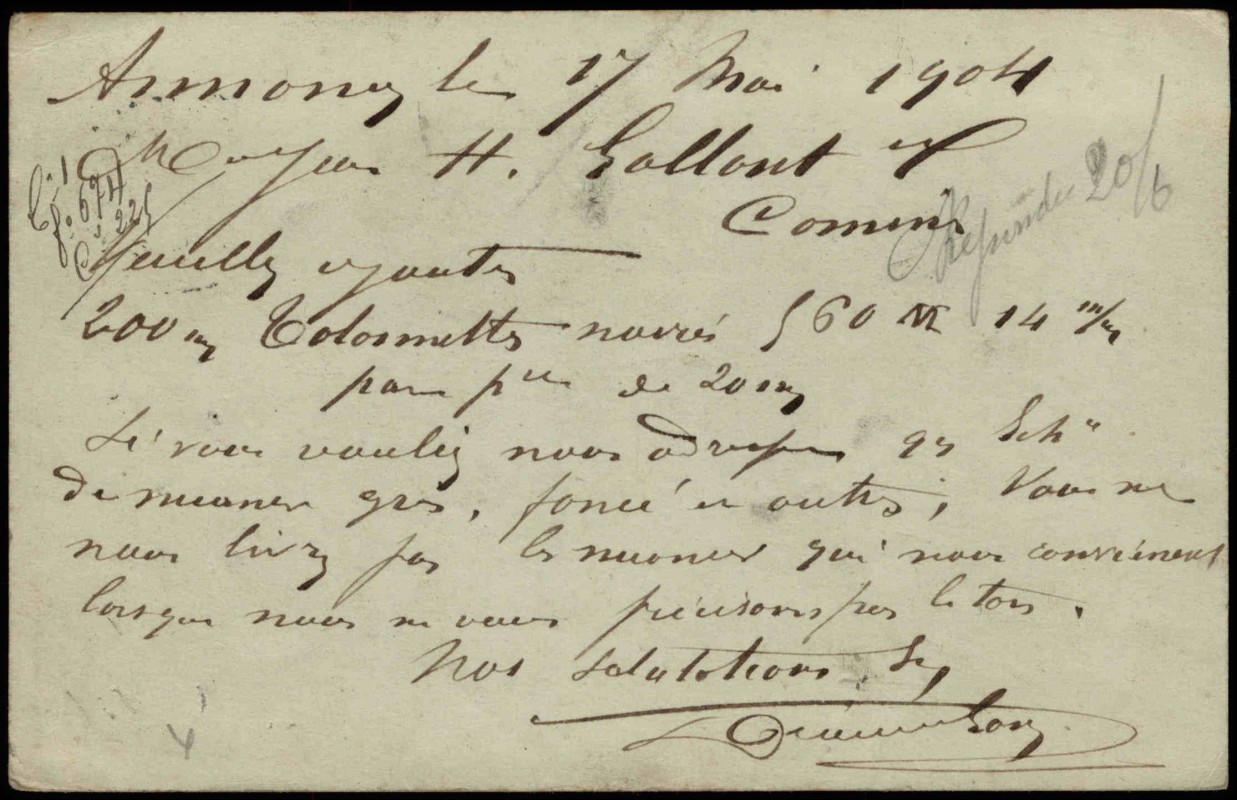 Annonay le 17 Mai 1904
Messieurs H. Gallant et C
Comines
Répondu 20/6
Veuillez ajouter
200 m Talonnettes noires § 60 14 m/m
par pces de 20 m
Si vous vouliez nous adresser qq Ech
de nuances gris, foncé et autres, Vous ne
nous livrez pas les nuances qui nous conviennent
lorsque nous ne vous précisons pas le ton.
Nos salutations